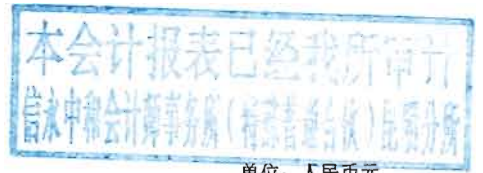 本会计报表已经我所审计
信永中和会计师事务所(特殊普通合伙)昆明分所
单位：人民币元